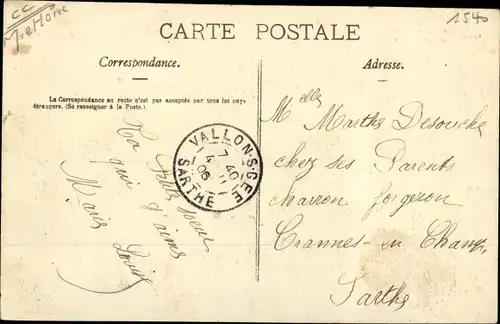 CC
1540
CARTE POSTALE
Correspondance.
Adresse.
La Correspondance au recto n'est pas acceptée par tous les pays
étrangers. (Se renseigner à la Poste.)
Ta petite soeur
qui t'aime
Marie Louise
VALLON-S-GEE
7 40
4
06
SARTHE
Melle Marthe Desouche
chez ses Parents
charron forgeron
Crannes-en Champ.
Sarthe